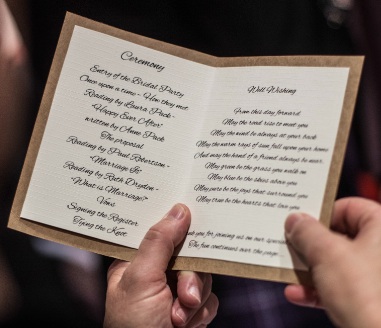 Ceremony
Entry of the Bridal Party
Once upon a time - How they met
Reading by Laura Pack -
"Happy Ever After"
written by Anne Pack
The proposal
Reading by Paul Robertson -
"Marriage Is"
Reading by Ruth Dryden -
"What is Marriage?"
Vows
Signing the Register
Tying the Knot
Well Wishing
From this day forward
May the road rise to meet you
May the wind be always at your back
May the warm rays of sun fall upon your home
And may the hand of a friend always be near.
May green be the grass you walk on
May blue be the skies above you
May pure be the joys that surround you
May true be the hearts that love you
you for joining us on our special
The fun continues over the page